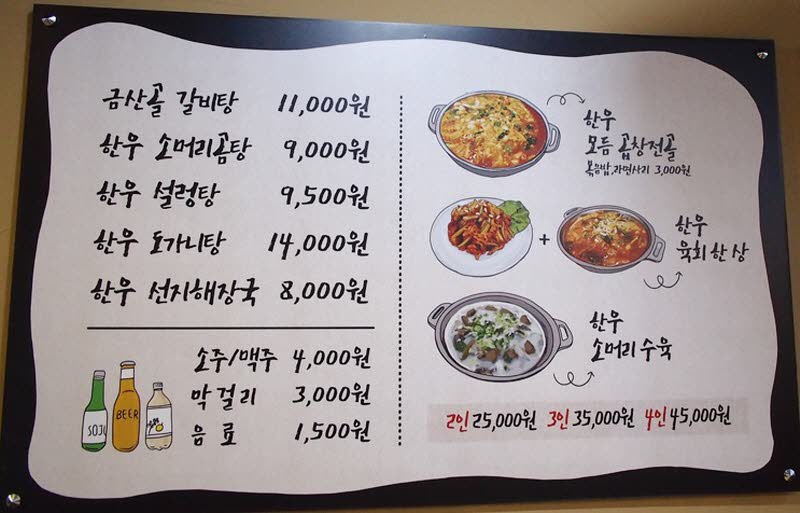 금산골 갈비탕 11,000원
한우 소머리곰탕 9,000원
한우 설렁탕 9,500원
한우 도가니탕 14,000원
한우 선지해장국 8,000원
소주/맥주 4,000원
막걸리 3,000원
음료 1,500원
SOJU
BEER
한우
모듬 곱창전골
볶음밥,라면사리 3,000원
+
한우
육회 한 상
한우
소머리 수육
2인 25,000원 3인 35,000원 4인 45,000원